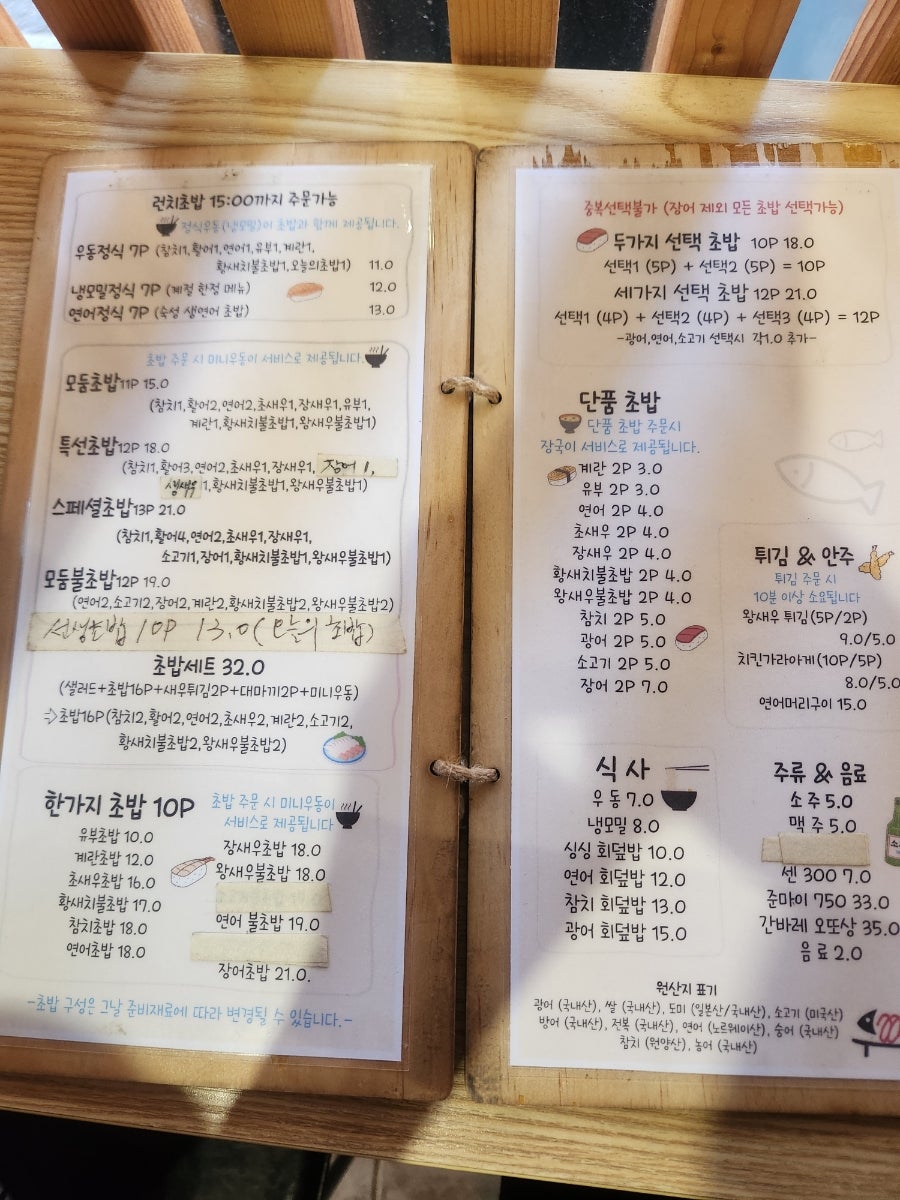 런치초밥 15:00까지 주문가능
정식우동(냉모밀)이 초밥과 함께 제공됩니다.
우동정식 7P (참치1,활어1,연어1,유부1,계란1,
황새치불초밥1,오늘의초밥1) 11.0
냉모밀정식 7P (계절 한정 메뉴) 12.0
연어정식 7P (숙성 생연어 초밥) 13.0
초밥 주문 시 미니우동이 서비스로 제공됩니다.
모둠초밥11P 15.0
(참치1,활어2,연어2,초새우1,장새우1,유부1,
계란1,황새치불초밥1,왕새우불초밥1)
특선초밥12P 18.0
(참치1,활어3,연어2,초새우1,장새우1, 장어 1,
생새우1,황새치불초밥1,왕새우불초밥1)
스페셜초밥13P 21.0
(참치1,활어4,연어2,초새우1,장새우1,
소고기1,장어1,황새치불초밥1,왕새우불초밥1)
모둠불초밥12P 19.0
(연어2,소고기2,장어2,계란2,황새치불초밥2,왕새우불초밥2)
선생초밥 10P 13.0(오늘의 초밥)
초밥세트 32.0
(샐러드+초밥16P+새우튀김2P+대마끼2P+미니우동)
⇨초밥16P(참치2,활어2,연어2,초새우2,계란2,소고기2,
황새치불초밥2,왕새우불초밥2)
한가지 초밥 10P
초밥 주문 시 미니우동이
서비스로 제공됩니다
유부초밥 10.0
계란초밥 12.0
초새우초밥 16.0
황새치불초밥 17.0
참치초밥 18.0
연어초밥 18.0
장새우초밥 18.0
왕새우불초밥 18.0
연어 불초밥 19.0
장어초밥 21.0.
-초밥 구성은 그날 준비재료에 따라 변경될 수 있습니다.-
중복선택불가 (장어 제외 모든 초밥 선택가능)
두가지 선택 초밥 10P 18.0
선택1 (5P) + 선택2 (5P) = 10P
세가지 선택 초밥 12P 21.0
선택1 (4P) + 선택2 (4P) + 선택3 (4P) = 12P
-광어,연어,소고기 선택시 각1.0 추가-
단품 초밥
단품 초밥 주문시
장국이 서비스로 제공됩니다.
계란 2P 3.0
유부 2P 3.0
연어 2P 4.0
초새우 2P 4.0
장새우 2P 4.0
황새치불초밥 2P 4.0
왕새우불초밥 2P 4.0
참치 2P 5.0
광어 2P 5.0
소고기 2P 5.0
장어 2P 7.0
튀김 & 안주
튀김 주문 시
10분 이상 소요됩니다
왕새우 튀김(5P/2P)
9.0/5.0
치킨가라아게(10P/5P)
8.0/5.0
연어머리구이 15.0
식사
우동 7.0
냉모밀 8.0
싱싱 회덮밥 10.0
연어 회덮밥 12.0
참치 회덮밥 13.0
광어 회덮밥 15.0
주류 & 음료
소주 5.0
맥주 5.0
센 300 7.0
준마이 750 33.0
간바레 오또상 35.0
음료 2.0
원산지 표기
광어 (국내산), 쌀 (국내산), 도미 (일본산/국내산), 소고기 (미국산)
방어 (국내산), 전복 (국내산), 연어 (노르웨이산), 숭어 (국내산)
참치 (원양산), 농어 (국내산)